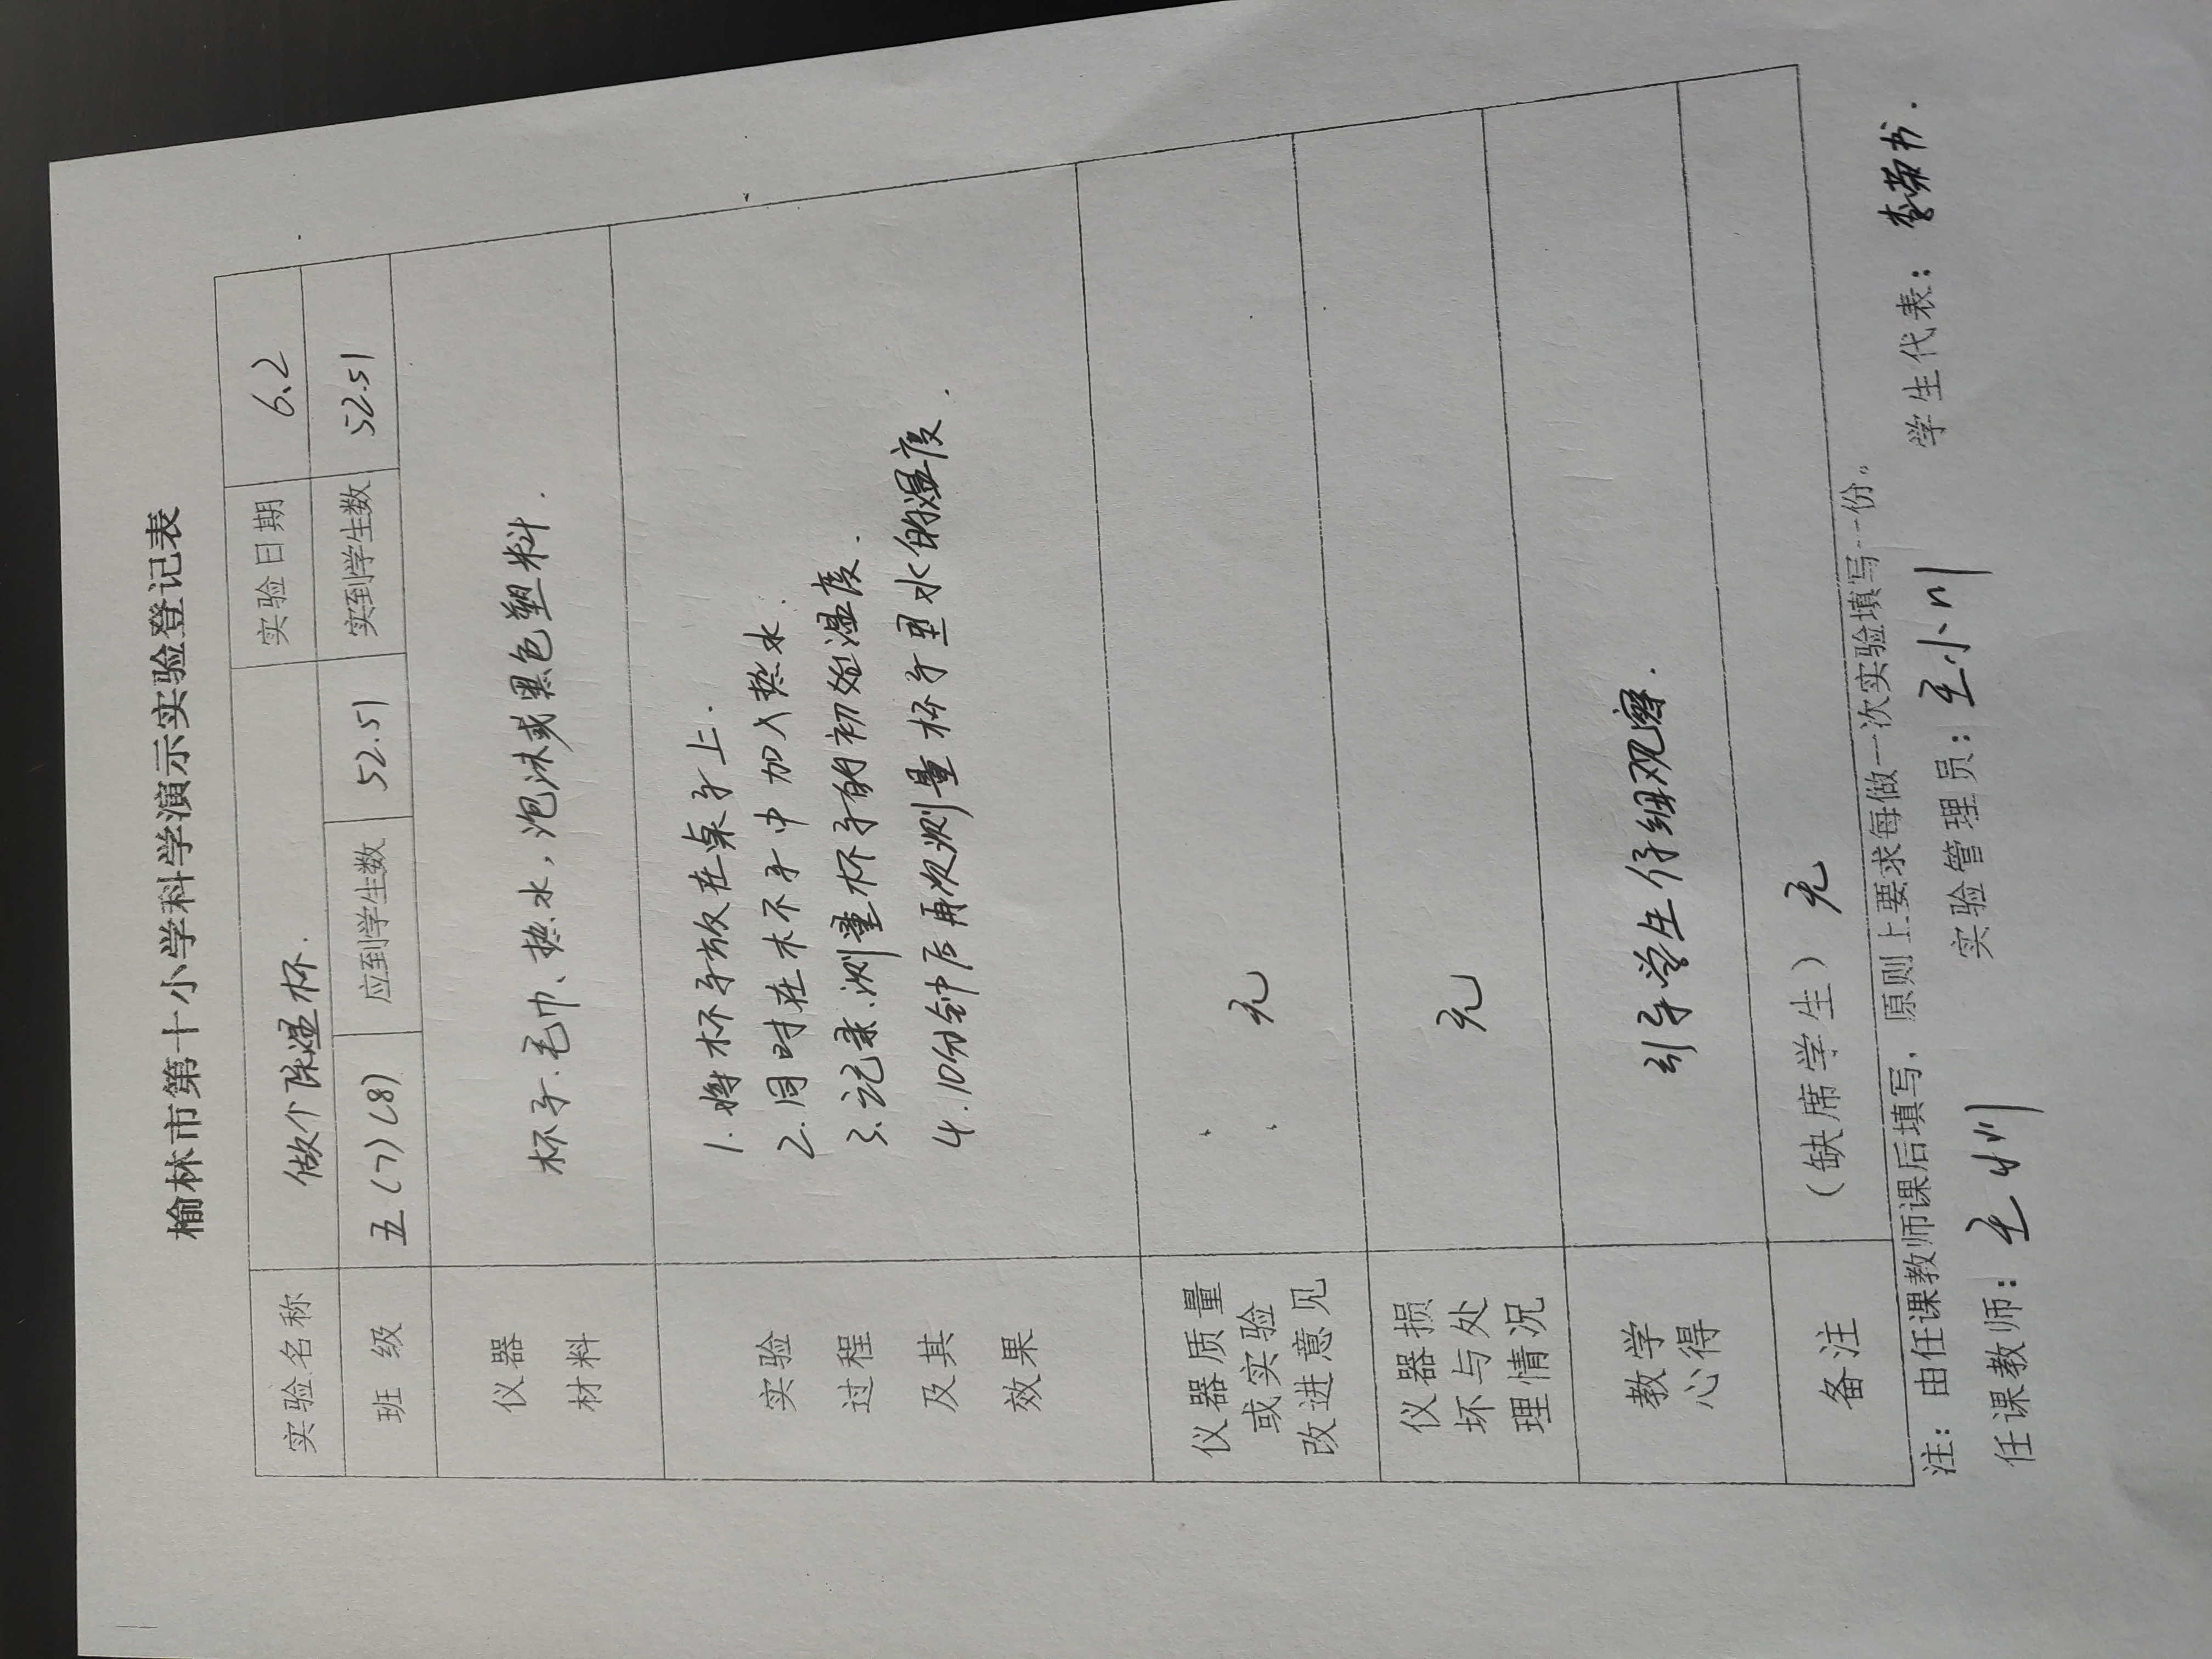 榆林市第十小学科学演示实验登记表
实验名称 做个保温杯. 实验日期 6.2
班 级 五(7)(8) 应到学生数 52.51 实到学生数 52.51
仪器
材料
杯子.毛巾、热水,泡沫或黑色塑料.
实验
过程
及其
效果
1.将杯子放在桌子上.
2.同时在杯子中加入热水.
3.记录.测量杯子的初始温度.
4.10分钟后再次测量杯子里水的温度.
仪器质量
或实验
改进意见
无
仪器损
坏与处
理情况
无
教学
心得
引导学生仔细观察.
备注 (缺席学生) 无
注:由任课教师课后填写,原则上要求每做一次实验填写一份。
任课教师: 实验管理员:王小川 学生代表:李荣书.